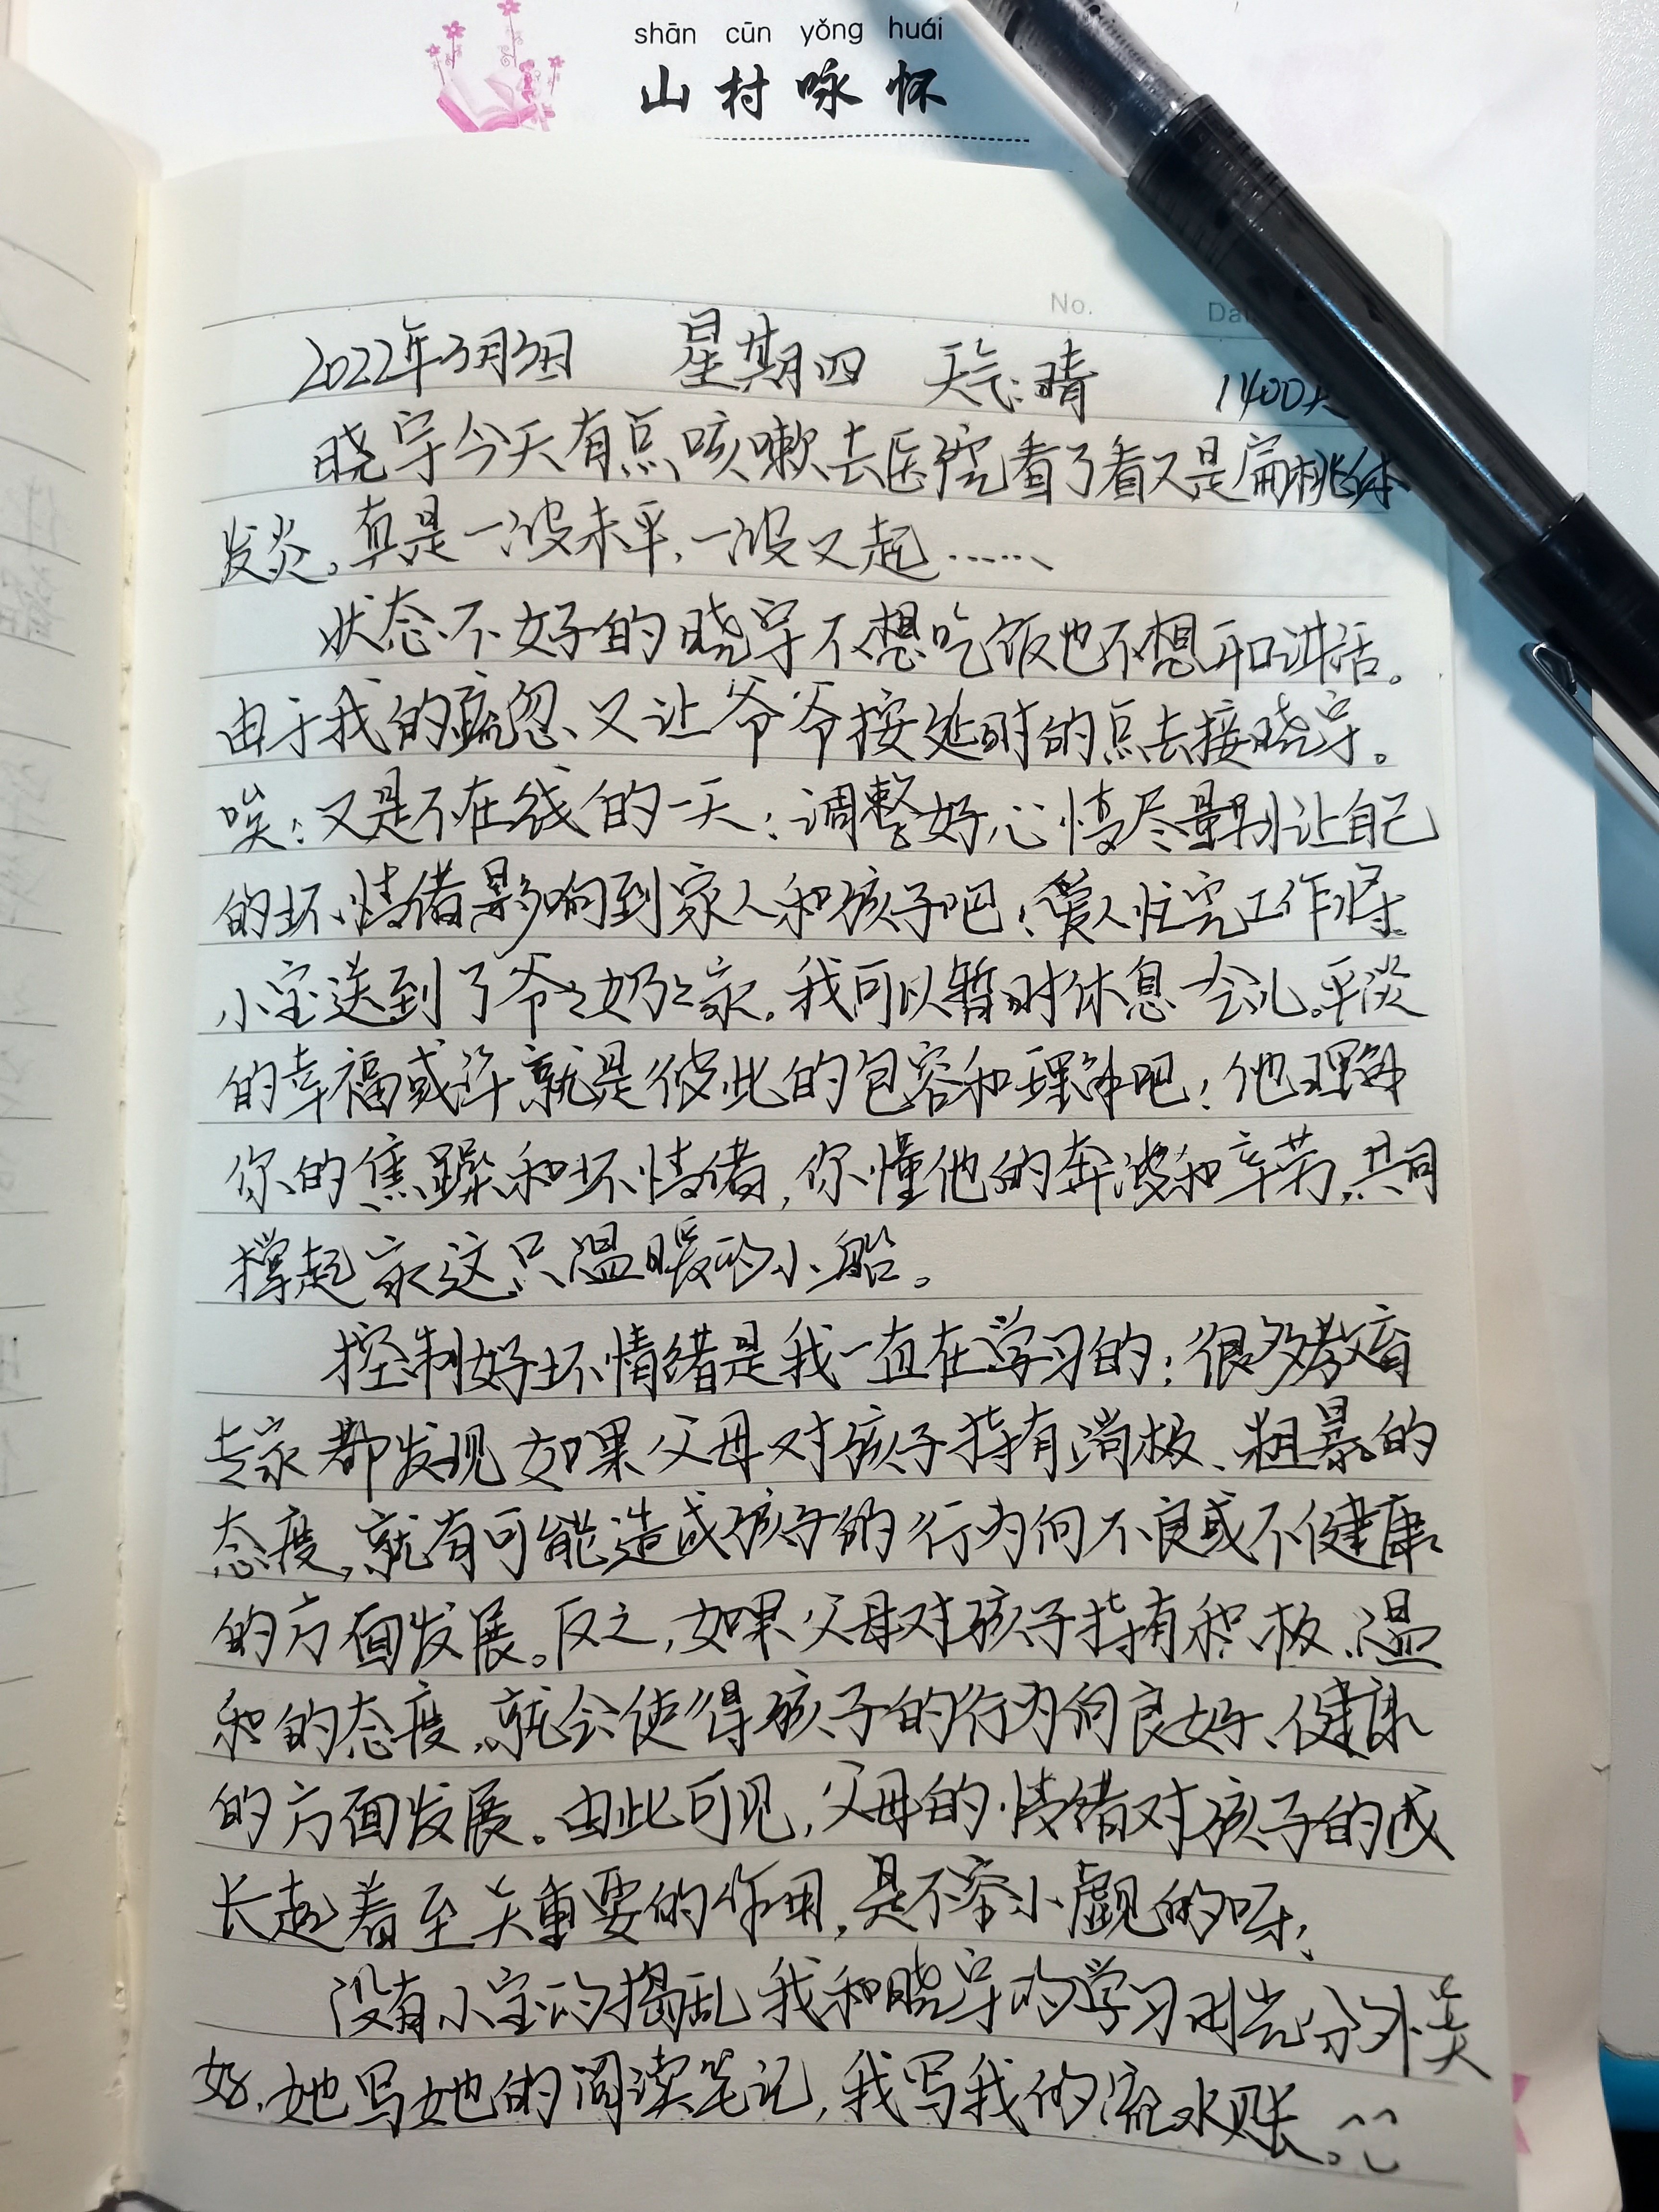 shān cūn yǒng huái
山村咏怀
No.
2022年3月3日 星期四 天气:晴 1400
晓宇今天有点咳嗽去医院看了看又是扁桃体
发炎。真是一波未平,一波又起……
状态不好的晓宇不想吃饭也不想开口讲话。
由于我的疏忽、又让爷爷按延时的点去接晓宇。
唉!又是不在线的一天!调整好心情尽量别让自己
的坏情绪影响到家人和孩子吧!爱人忙完工作将
小宝送到了爷爷奶奶家。我可以暂时休息一会儿。平淡
的幸福或许就是彼此的包容和理解吧!他理解
你的焦躁和坏情绪,你懂他的奔波和辛劳,共同
撑起家这只温暖的小船。
控制好坏情绪是我一直在学习的!很多教育
专家都发现如果父母对孩子持有消极、粗暴的
态度,就有可能造成孩子的行为向不良或不健康
的方面发展。反之,如果父母对孩子持有积极、温
和的态度,就会使得孩子的行为向良好、健康
的方面发展。由此可见,父母的情绪对孩子的成
长起着至关重要的作用,是不容小觑的呀!
没有小宝的捣乱我和晓宇的学习时光分外美
好,她写她的阅读笔记,我写我的流水账。